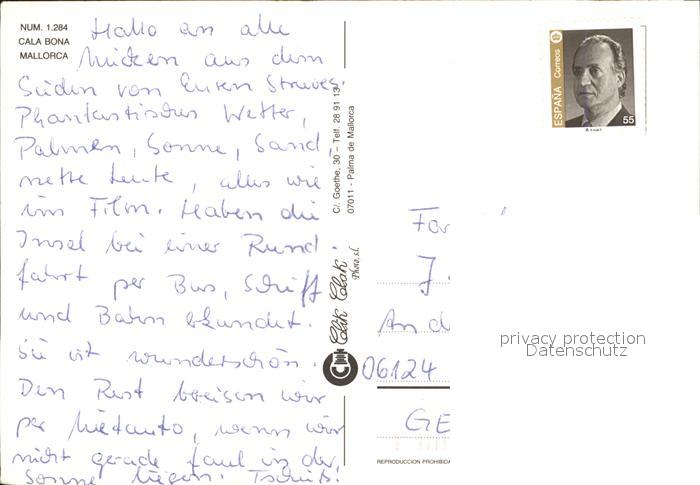 NUM. 1.284
CALA BONA
MALLORCA
Hallo an alle
aus dem
Süden von Euren
Phantastisches Wetter,
Palmen, Sonne, Sand,
nette Leute, alles wie
im Film. Haben die
Insel bei einer Rund-
fahrt per Bus, Schiff
und Bahn erkundet.
Sie ist wunderschön.
Den Rest bereisen wir
per Mietauto, wenn wir
nicht gerade faul in der
Sonne liegen. Tschüß!
C/. Goethe, 30 – Telf. 28 91 13
07011 - Palma de Mallorca
Clik Clak
Photo, s.l.
Correos
ESPAÑA
55
Fam
J.
An d
06124
GE
privacy protection
Datenschutz
REPRODUCCION PROHIBIDA